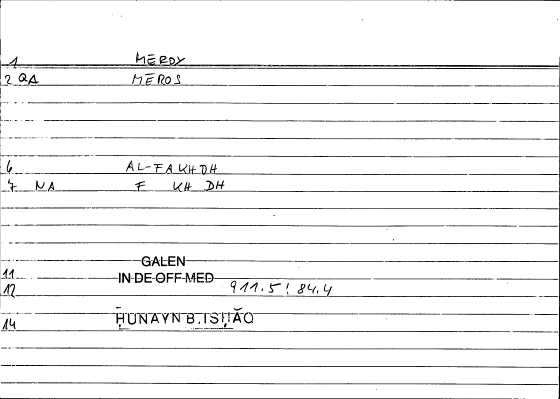 1 MERDY
2 QA MEROS
6 AL-FAKHDH
7 NA F KH DH
GALEN
11 IN DE OFF MED
12 911.5! 84.4
14 ḤUNAYN B. ISḤĀQ